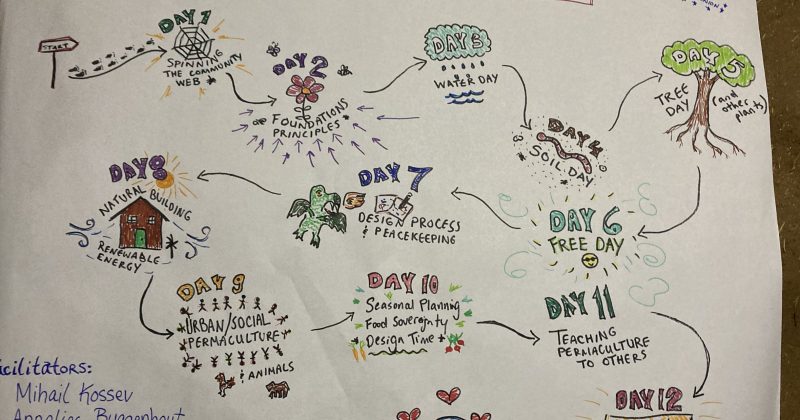 UNION
START
DAY 1
SPINNING
THE COMMUNITY
WEB
DAY 2
FOUNDATIONS
PRINCIPLES
DAY 3
WATER DAY
DAY 4
SOIL DAY
DAY 5
TREE
DAY
(and
other
plants)
DAY 6
FREE DAY
DAY 7
DESIGN PROCESS
& PEACEKEEPING
DAY 8
NATURAL BUILDING
RENEWABLE
ENERGY
DAY 9
URBAN/SOCIAL
PERMACULTURE
& ANIMALS
DAY 10
Seasonal Planning
Food Sovereignty
Design Time
DAY 11
TEACHING
PERMACULTURE
TO OTHERS
DAY 12
acilitators:
Mihail Kossev